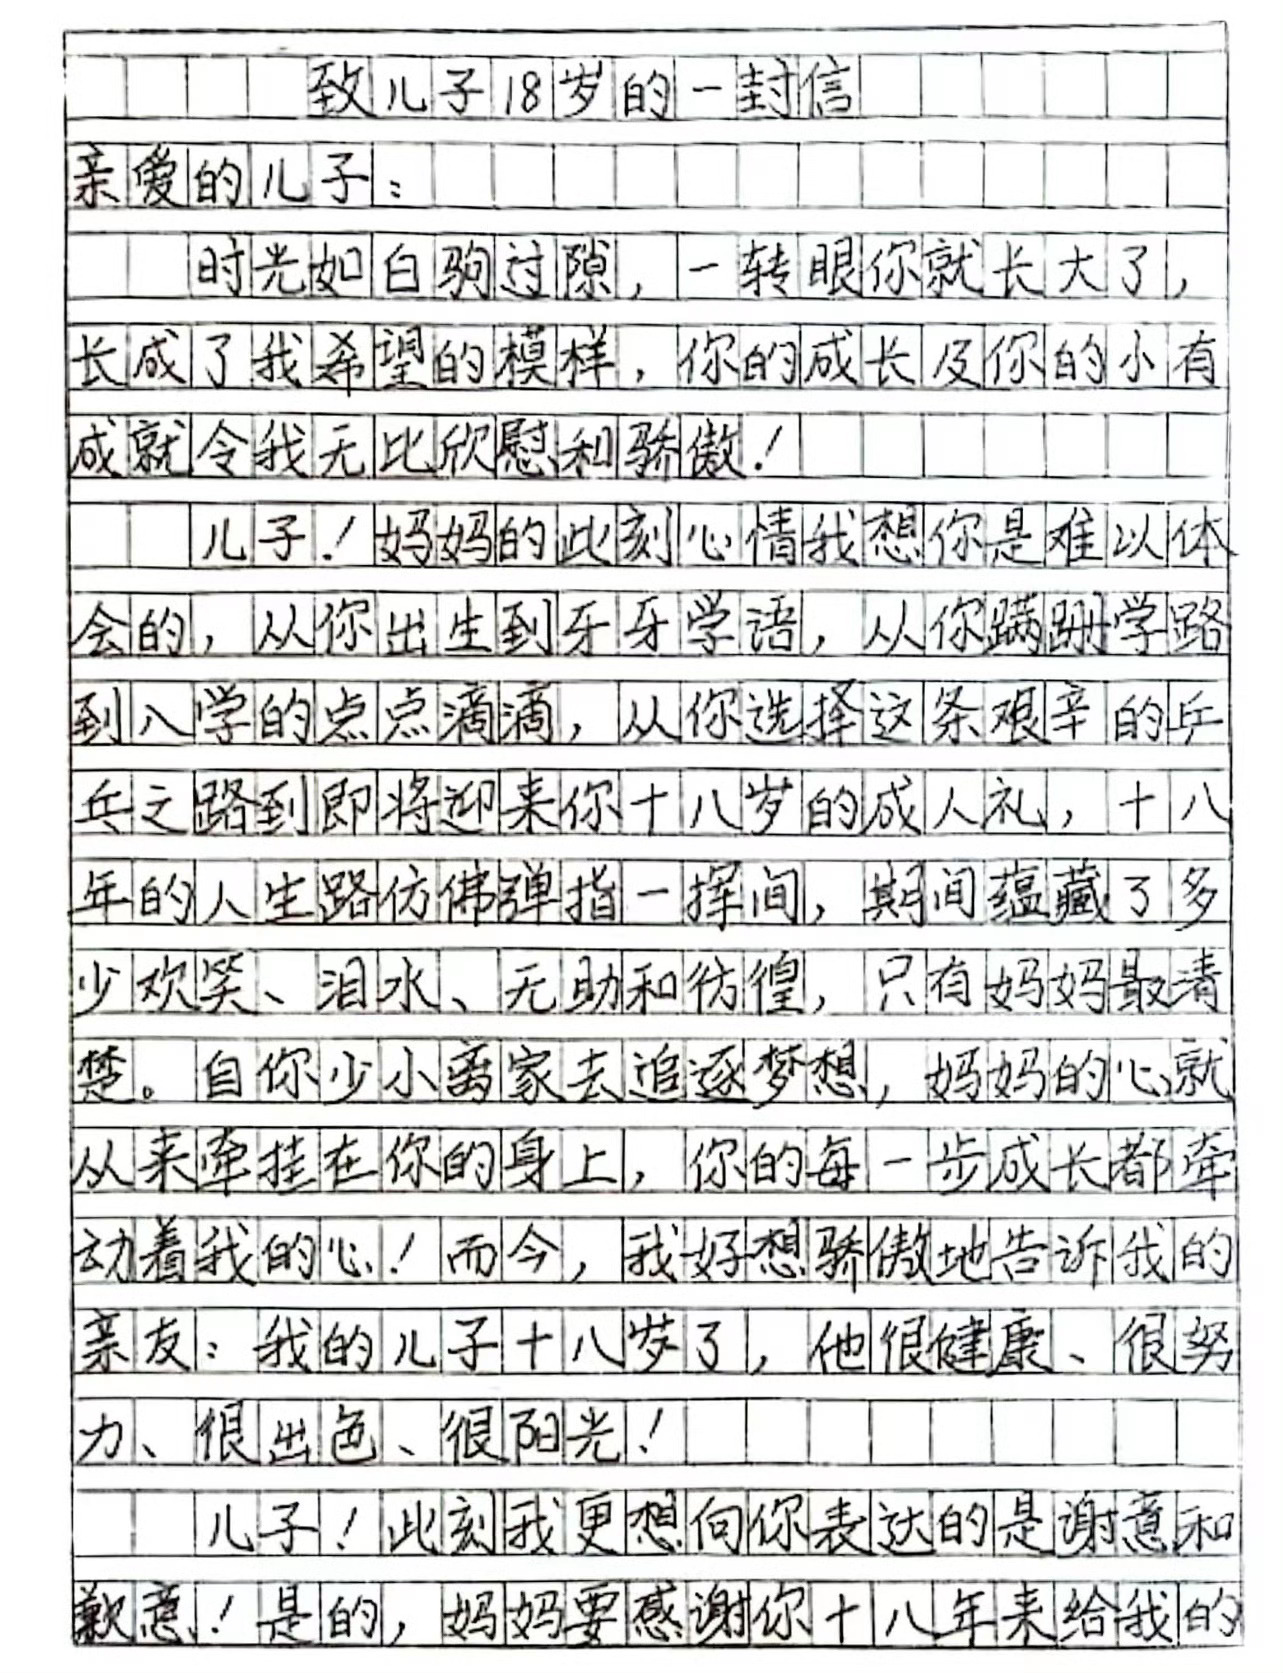 致儿子18岁的一封信
亲爱的儿子：
时光如白驹过隙，一转眼你就长大了，
长成了我希望的模样，你的成长及你的小有
成就令我无比欣慰和骄傲！
儿子！妈妈的此刻心情我想你是难以体
会的，从你出生到牙牙学语，从你蹒跚学路
到入学的点点滴滴，从你选择这条艰辛的乒
乓之路到即将迎来你十八岁的成人礼，十八
年的人生路仿佛弹指一挥间，期间蕴藏了多
少欢笑、泪水、无助和彷徨，只有妈妈最清
楚。自你少小离家去追逐梦想，妈妈的心就
从来牵挂在你的身上，你的每一步成长都牵
动着我的心！而今，我好想骄傲地告诉我的
亲友：我的儿子十八岁了，他很健康、很努
力、很出色、很阳光！
儿子！此刻我更想向你表达的是谢意和
歉意！是的，妈妈要感谢你十八年来给我的